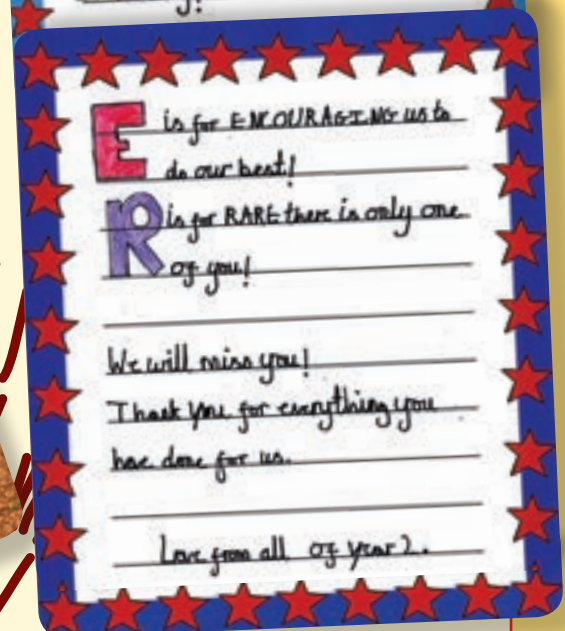 E is for ENCOURAGING us to
do our best!
R is for RARE there is only one
of you!
We will miss you!
Thank you for everything you
have done for us.
Love from all of year 2.